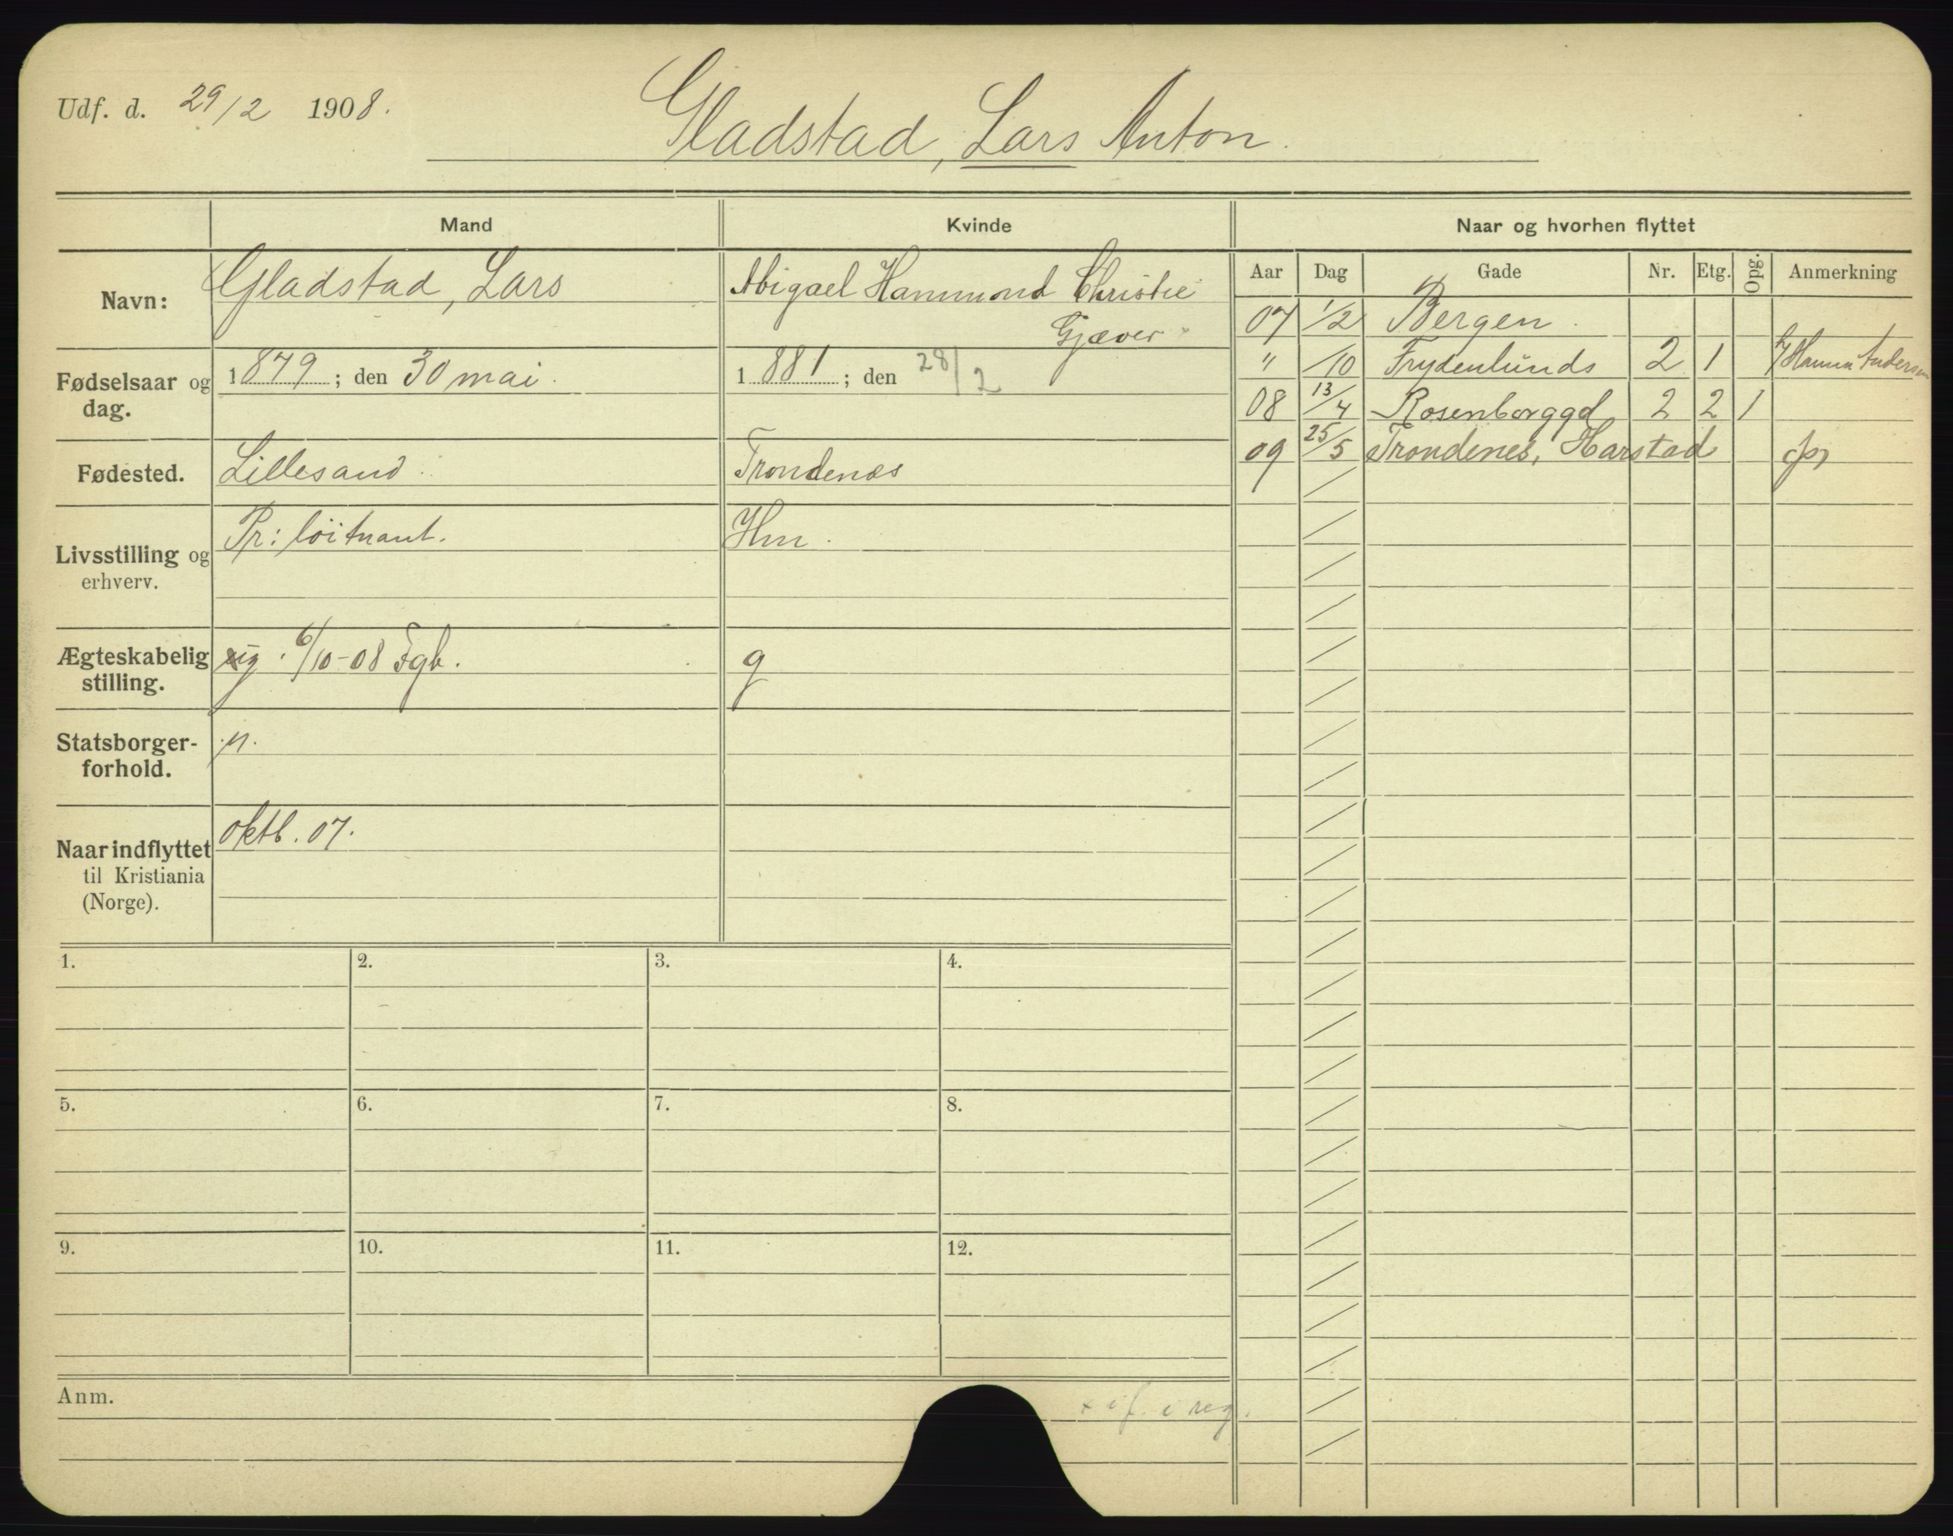 Udf. d. 29/2 1908.
Gladstad, Lars Anton.
Mand
Kvinde
Naar og hvorhen flyttet
Navn:
Gladstad, Lars
Abigael Hammond Christie
Gjæver
Fødselsaar og
dag.
1879; den 30 mai.
1881; den 28/2
Fødested.
Lillesand.
Trondenæs
Livsstilling og
erhverv.
Pr: løitnant.
Hm.
Ægteskabelig
stilling.
6/10-08 Fgb.
g
Statsborger-
forhold.
n.
Naar indflyttet
til Kristiania
(Norge).
oktb. 07.
Aar Dag Gade Nr. Etg. Opg. Anmerkning
07 1/2 Bergen.
" /10 Frydenlunds 2 1 Hanna Andersen
08 13/4 Rosenborggd 2 2 1
09 25/5 Trondenes, Harstad
1. 2. 3. 4.
5. 6. 7. 8.
9. 10. 11. 12.
Anm.
i reg.